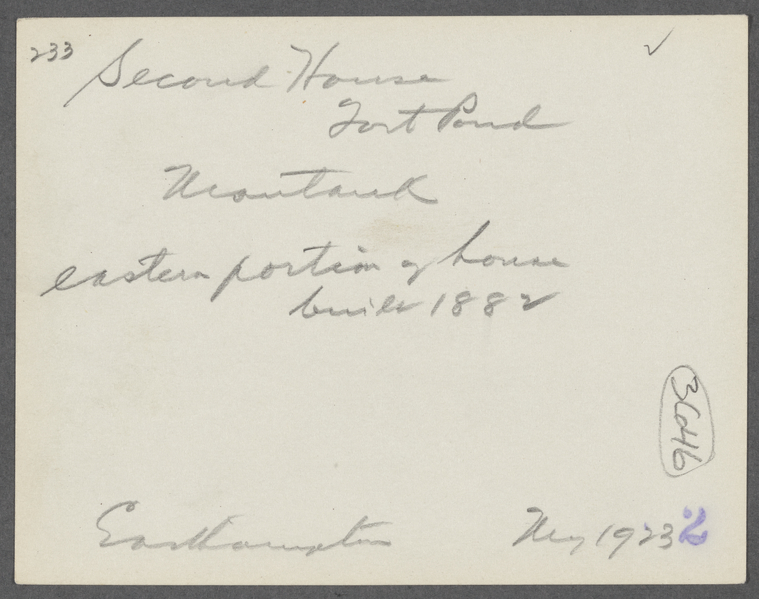 233 Second House
Fort Pond
Montauk
eastern portion of house
built 1882
36d46
Easthampton May 1923 2